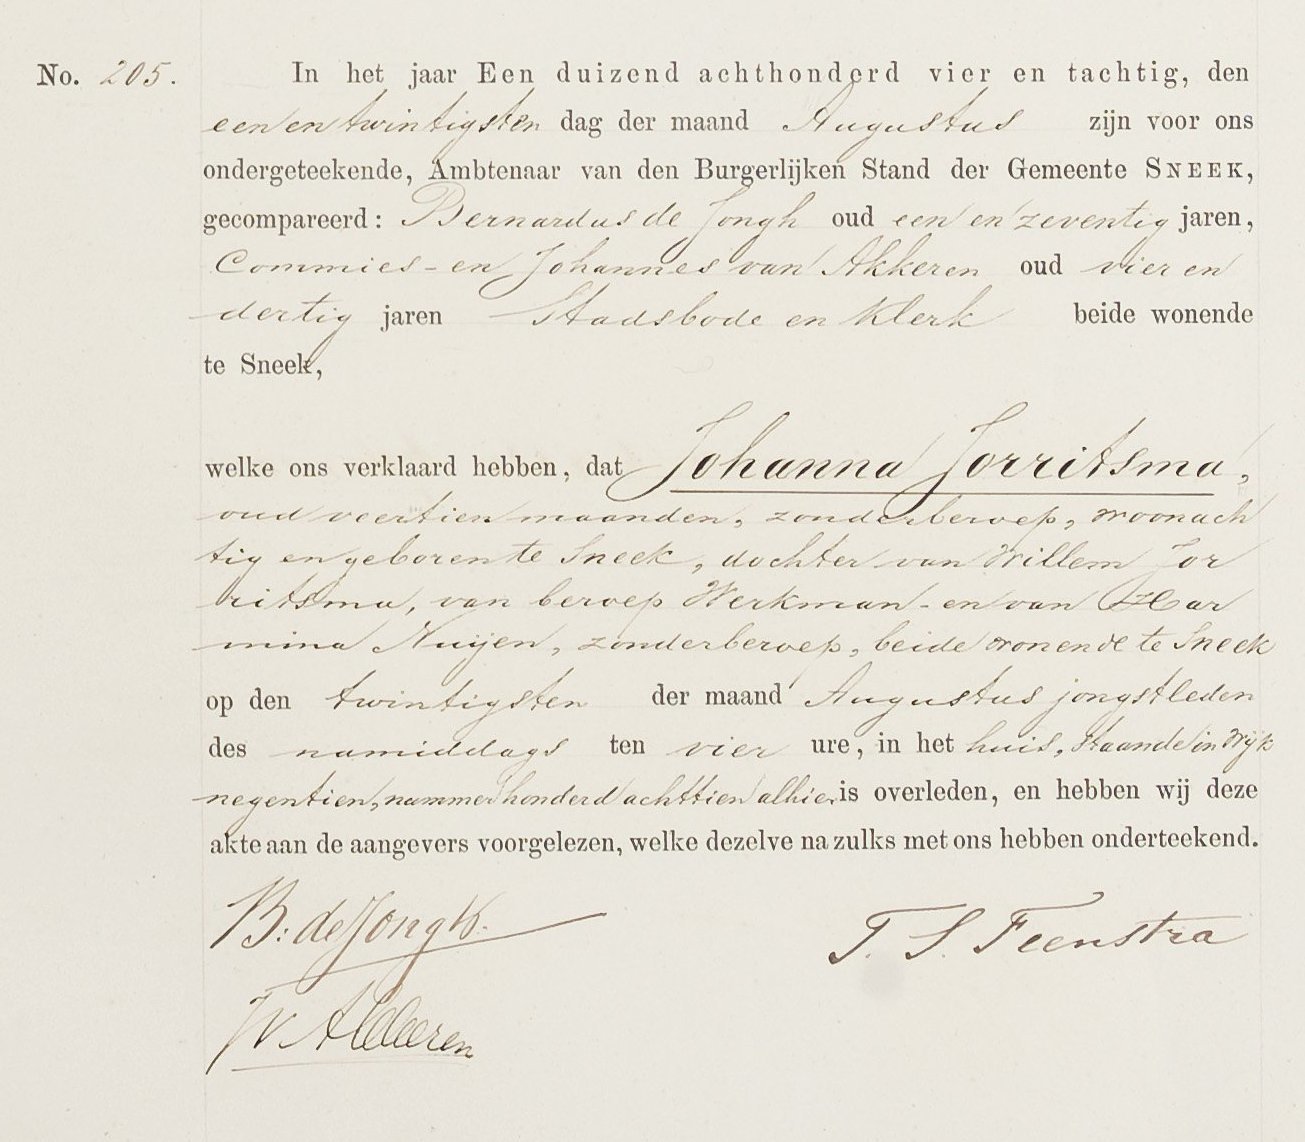 No. 205.
In het jaar Een duizend achthonderd vier en tachtig, den
een en twintigsten dag der maand Augustus zijn voor ons
ondergeteekende, Ambtenaar van den Burgerlijken Stand der Gemeente SNEEK,
gecompareerd: Bernardus de Jongh oud een en zeventig jaren,
Commies - en Johannes van Akkeren oud vier en
dertig jaren Stadsbode en Klerk beide wonende
te Sneek,
welke ons verklaard hebben, dat Johanna Jorritsma,
oud veertien maanden, zonder beroep, woonach
tig en geboren te Sneek, dochter van Willem Jor
ritsma, van beroep Werkman - en van Har
mina Nuijen, zonder beroep, beide wonende te Sneek
op den twintigsten der maand Augustus jongstleden
des namiddags ten vier ure, in het huis, staande in Wijk
negentien, nummer honderd achttien alhier is overleden, en hebben wij deze
akte aan de aangevers voorgelezen, welke dezelve na zulks met ons hebben onderteekend.
B: de Jongh.
T. S. Feenstra
J v Akkeren